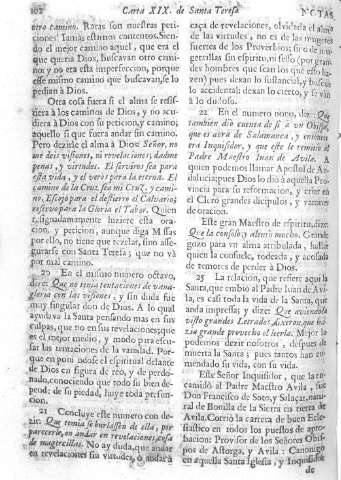 102 Carta XIX. de Santa Teresa NOTAS
otro camino. Rotas son nuestras peti-
ciones! Iamàs estamos contentos. Sien-
do el mejor camino aquel, que era el
que queria Dios, buscavan otro cami-
no; y no era esta imperfeccion, porque
este mismo camino que buscavan, se lo
pedian à Dios.
Otra cosa fuera si el alma se resis-
tiera à los caminos de Dios, y no acu-
diera à Dios con su peticion, y camino;
aquello si que fuera andar sin camino.
Pero dezirle el alma à Dios: Señor, no
me deis visiones, ni revelaciones, dadme
penas, y virtudes. El serviros sea para
esta vida, y el veros para la eterna. El
camino de la Cruz sea mi Cruz, y cami-
no, Escojo para el destierro el Calvario;
reserva para la Gloria el Tabor. Quien
resignadamente hiziere esta ora-
cion, y peticion, aunque diga M Issas
por ello, no tiene que rezelar, sino asse-
gurarse con Santa Teresa; que no và
por mal camino.
20 En el mismo numero octavo,
dize: Que no tenia tentaciones de vana-
gloria con las visiones, y sin duda fue
muy singular don de Dios. A lo qual
ayudava la Santa pensando mas en sus
culpas, que no en sus revelaciones; que
es el mejor medio, y modo para escu-
sar las tentaciones de la vanidad. Por-
que en poniendose el espiritual delante
de Dios en figura de reo, y de perdo-
nado, conociendo que todo su bien de-
pende de su piedad, huye toda presun-
cion.
21 Concluye este numero con de-
zir: Que temia se burlassen de ella, por
parecerle, en andar en revelaciones, cosa
de mugercillas. No ay duda, que andar
en revelaciones sin virtudes, ò andar à
caça de revelaciones, olvidada el alma
de las virtudes, no es de las mugeres
fuertes de los Proverbios; sino de mu-
gercillas sin espiritu, ni sesso (por gran-
des hombres que sean los que esso ha-
zen) pues dexan lo sustancial, y buscan
lo accidental; dexan lo cierto, y se vàn
à lo dudoso.
22 En el numero nono, dize: Que
tambien diò cuenta de si à un Obispo,
que es aora de Salamanca, y entonces
era Inquisidor, y que este le remitiò al
Padre Maestro Iuan de Avila. A
quien podemos llamar Apostol de An-
daluzia, que Dios lo diò à aquella Pro-
vincia para su reformacion, y criar en
el Clero grandes dicipulos, y varones
de oracion.
Este gran Maestro de espiritu, dize:
Que la consolò, y alentò mucho. Grande
gozo para un alma atribulada, hallar
quien la consuele, todeada, y acosada
de temores de perder à Dios.
23 La relacion, que refiere aqui la
Santa, que embiò al Padre Iuan de Avi-
la, es casi toda la vida de la Santa, que
anda impressa; y dize: Que aviendola
visto grandes Letrados, dixeron, que ha-
zia grande provecho el leerla. Mejor lo
podemos dezir nosotros, despues de
muerta la Santa; pues tantos han en-
mendado su vida, con su vida.
Este Señor Inquisidor, que la en-
caminò al Padre Maestro Avila, fue
Don Francisco de Soto, y Salazar, natu-
ral de Bonilla de la Sierra en tierra de
Avila. Corriò la carrera de buen Ecle-
siastico en todos los puestos de apro-
bacion: Provisor de los Señores Obis-
pos de Astorga, y Avila: Canonigo
en aquella Santa Iglesia, y Inquisidor
de